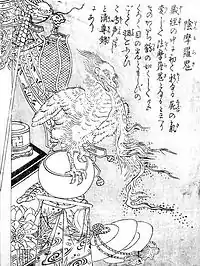 陰摩羅鬼
蔵経の中に初て新なる屍の気
変じて陰摩羅鬼となると云へり
そのかたち鶴の如くして色
くろく目の光ともしびの
ごとく羽をふるひて
鳴声たかし
と清尊録
にあり